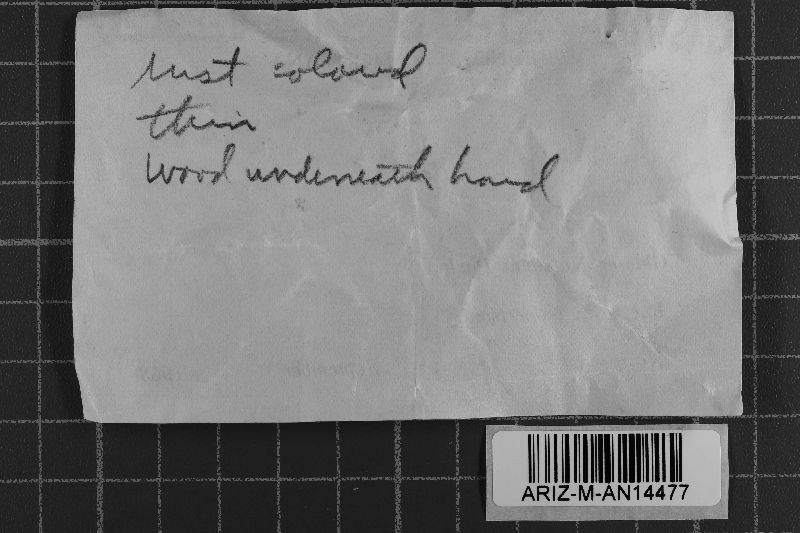 rust colored
thin
wood underneath hard
ARIZ-M-AN14477